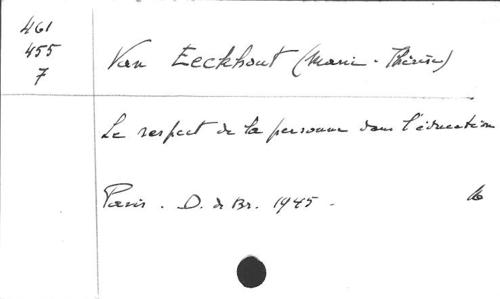 461
455
7
Van Eeckhout (Marie-Thérèse)
Le respect de la personne dans l'éducation
Paris. D. de Br. 1945.